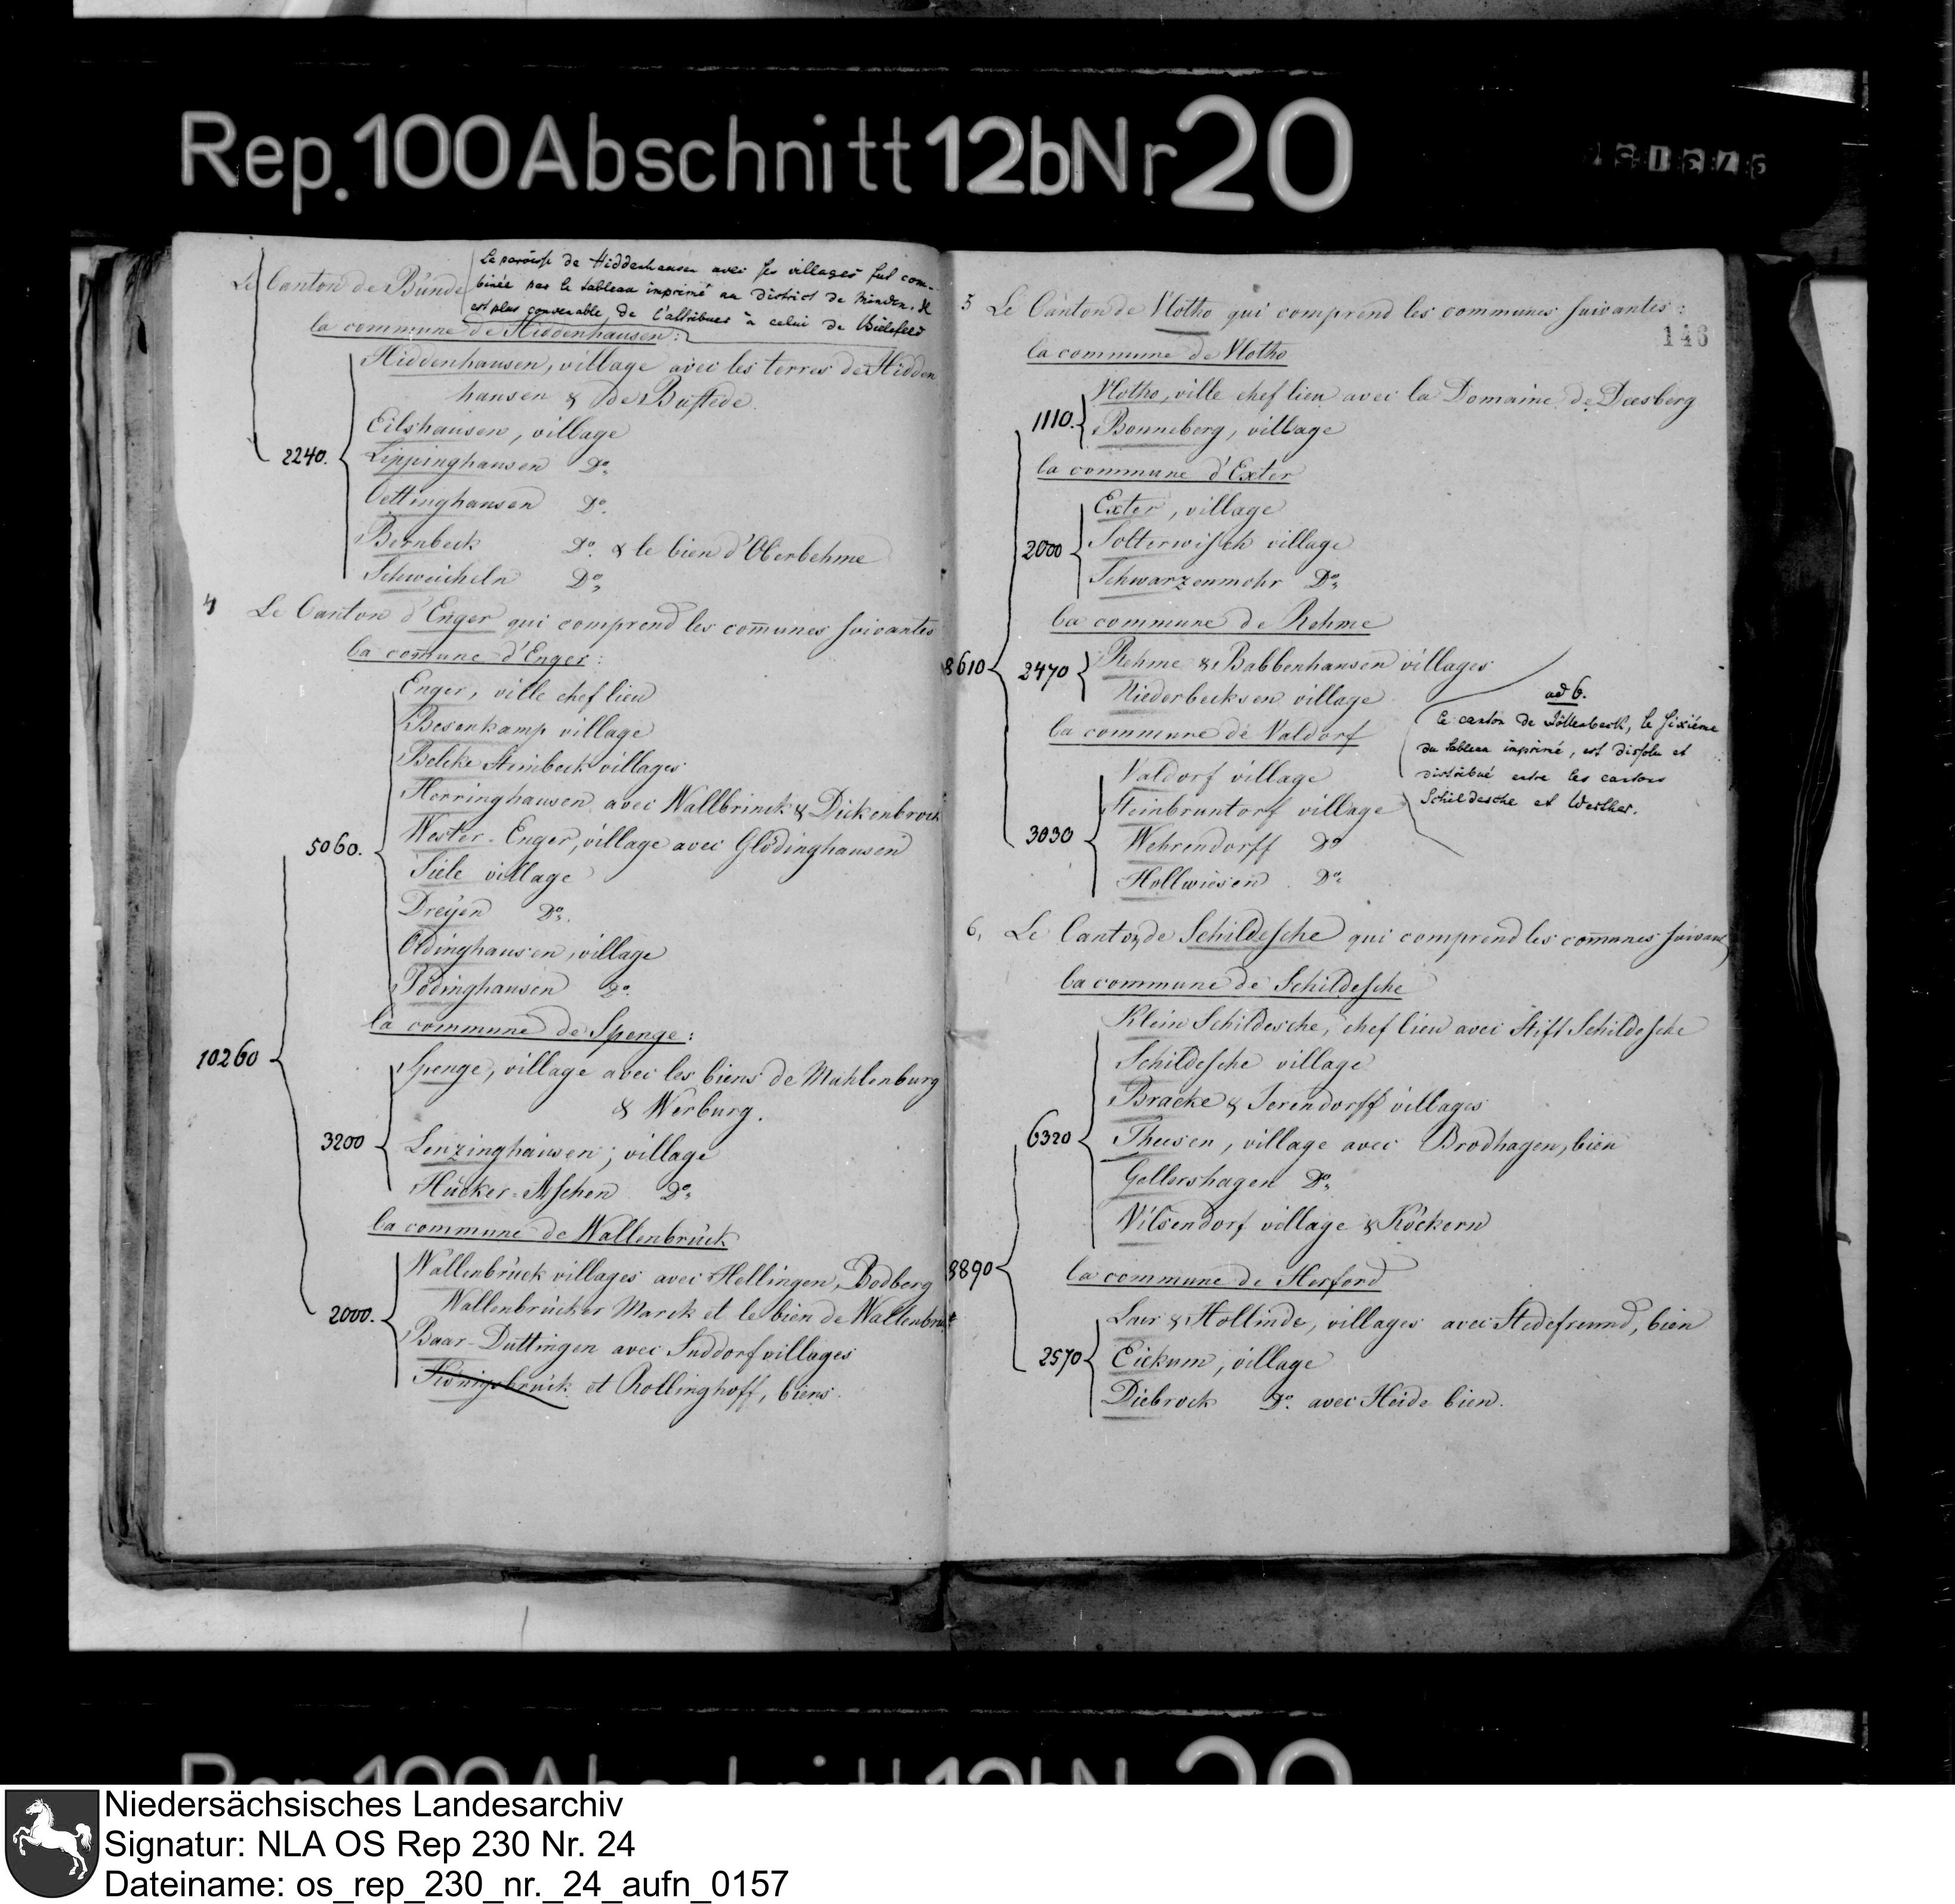 Rep. 100 Abschnitt 12b Nr 20
Le Canton de Bünde
La paroisse de Hiddenhausen avec ses villages fut com-
binée par le tableau imprimé au district de Minden. Il
est plus convenable, de l'attribuer à celui de Bielefeld
la commune de Hiddenhausen:
Hiddenhausen, village avec les terres de Hidden
hausen & de Bustede.
Eilshausen, village
2240. Lippinghausen Do.
Oettinghausen Do.
Bernbeck Do. & le bien d'Oberbehme
Schweicheln Do.
4 Le Canton d'Enger qui comprend les com̅unes suivantes
la com̅une d'Enger:
Enger, ville chef lieu
Besenkamp village
Belcke Steinbeck villages
Herringhausen avec Wallbrinck & Dickenbrock
5060. Wester-Enger, village avec Glödinghausen
Siele village
Dreyen Do.
Oldinghausen, village
Pödinghausen Do.
la commune de Spenge:
10260
Spenge, village avec les biens de Muhlenburg
& Werburg.
3200 Lenzinghausen, village
Hücker-Aschen Do.
la commune de Wallenbrück
Wallenbrück villages avec Hellingen, Bodberg
2000. Wallenbrücker Marck et le bien de Wallenbrück
Baar-Duttingen avec Suddorf villages
Königsbrück et Rollinghoff, biens.
5 Le Canton de Vlotho qui comprend les communes suivantes:
146
la commune de Vlotho
Vlotho, ville chef lieu avec la Domaine de Deesberg
1110. Bonneberg, village
la commune d'Exter
Exter, village
2000 Solterwisch village
Schwarzenmohr Do.
la commune de Rehme
8610 2470 Rehme & Babbenhausen villages
Niederbecksen village
la commune de Valdorf
ad 6.
Le canton de Jöllenbeck, le sixième
du tableau imprimé, est dissolu et
distribué entre les cantons
Schildesche et Werther.
Valdorf village
Steinbruntorf village
3030 Wehrendorff Do
Hollwiesen Do.
6. Le Canton de Schildesche qui comprend les com̅unes suivant
la commune de Schildesche
Klein Schildesche, chef lieu avec Stift Schildesche
Schildesche village
Bracke & Jerendorff villages
6320 Theesen, village avec Brodhagen, bien
Gellershagen Do.
Vilsendorf village & Röckern
8890
la commune de Herford
Laer & Hollinde, villages avec Stedefreund, bien
2570 Eickum, village
Diebrock Do. avec Heide bien.
Rep. 100 Abschnitt 12b Nr 20
Niedersächsisches Landesarchiv
Signatur: NLA OS Rep 230 Nr. 24
Dateiname: os_rep_230_nr._24_aufn_0157